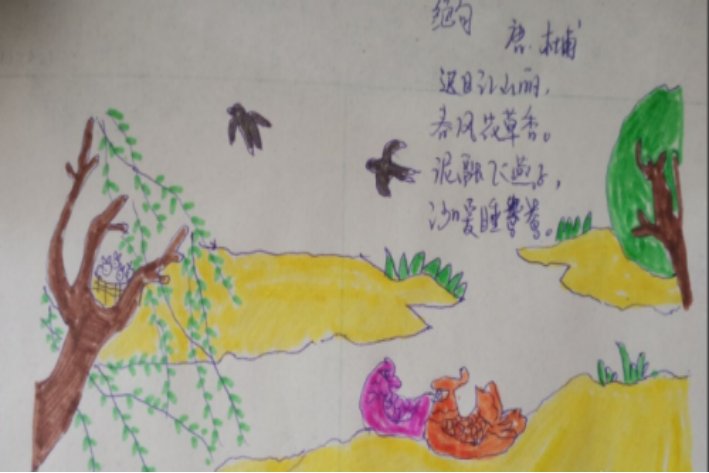 绝句
唐.杜甫
迟日江山丽，
春风花草香。
泥融飞燕子，
沙暖睡鸳鸯。